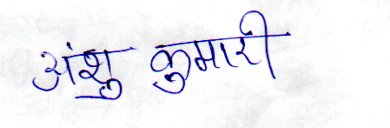 अंशु कुमारी